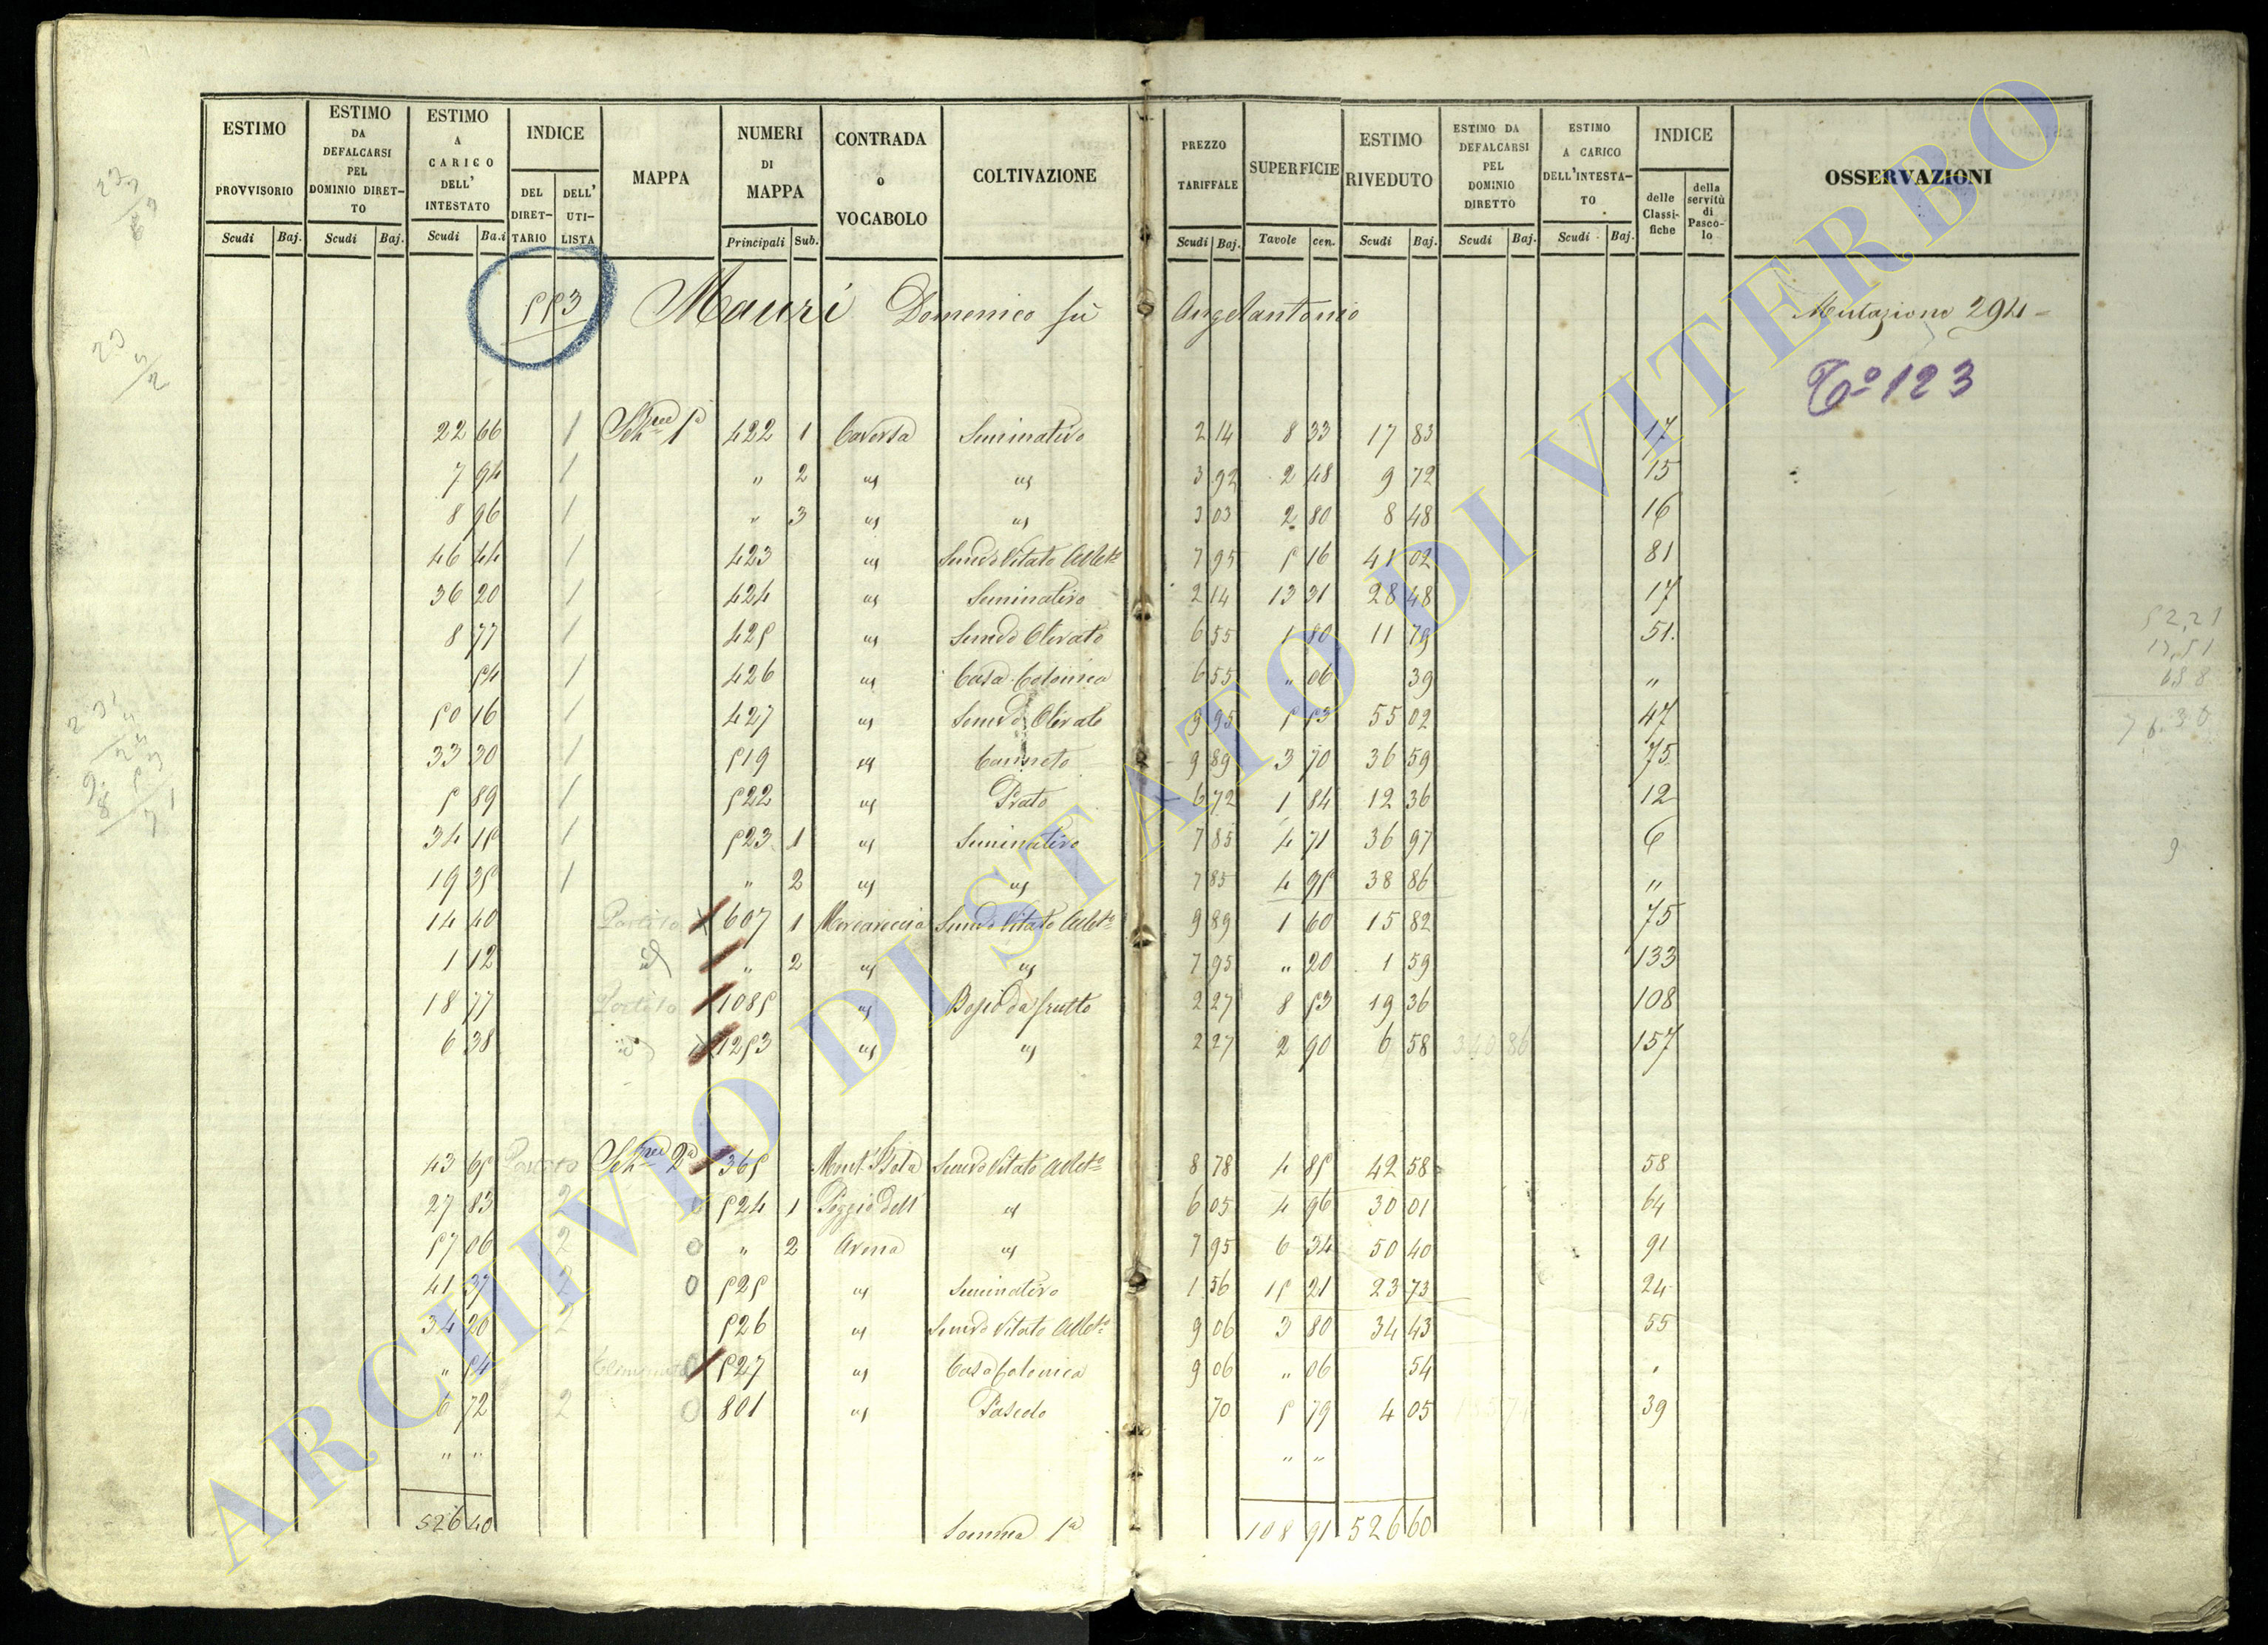 ESTIMO PROVVISORIO Scudi Baj.
ESTIMO DA DEFALCARSI PEL DOMINIO DIRETTO Scudi Baj.
ESTIMO A CARICO DELL' INTESTATO Scudi Ba.i
INDICE DEL DIRETTARIO DELL' UTILISTA
MAPPA
NUMERI DI MAPPA Principali Sub.
CONTRADA o VOCABOLO
COLTIVAZIONE
PREZZO TARIFFALE Scudi Baj.
SUPERFICIE Tavole cen.
ESTIMO RIVEDUTO Scudi Baj.
ESTIMO DA DEFALCARSI PEL DOMINIO DIRETTO Scudi Baj.
ESTIMO A CARICO DELL'INTESTATO Scudi Baj.
INDICE delle Classifiche della servitù di Pascolo
OSSERVAZIONI
553 Mauri Domenico fù Angelantonio Mutazione 294
Co 123
22 66 1 Sez 1a 422 1 Caversa Seminativo 2 14 8 33 17 83 17
7 94 1 " 2 id id 3 92 2 48 9 72 15
8 96 1 " 3 id id 3 03 2 80 8 48 16
46 44 1 423 id Semvo Vitato Albto 7 95 5 16 41 02 81
36 20 1 424 id Seminativo 2 14 13 31 28 48 17
8 77 1 425 id Semvo Olivato 6 55 1 80 11 79 51
54 1 426 id Casa Colonica 6 55 " 06 39 "
50 16 1 427 id Semvo Olivato 9 95 5 53 55 02 47
33 30 1 519 id Canneto 9 89 3 70 36 59 75
5 89 1 522 id Prato 6 72 1 84 12 36 12
34 15 1 523 1 id Seminativo 7 85 4 71 36 97 6
19 35 1 " 2 id id 7 85 4 95 38 86 "
14 40 Partito 607 1 Mercareccia Semvo Vitato Albto 9 89 1 60 15 82 75
1 12 id " 2 id id 7 95 " 20 1 59 133
18 77 Partito 1085 id Bosco da frutto 2 27 8 53 19 36 108
6 38 id 1253 id id 2 27 2 90 6 58 340 86 157
43 65 Partito Sez 2a 365 Semvo Vitato Albto 8 78 4 85 42 58 58
27 83 2 0 524 1 Poggio dell' id 6 05 4 96 30 01 64
57 06 2 0 " 2 Arena id 7 95 6 34 50 40 91
41 37 2 0 525 id Seminativo 1 56 15 21 23 73 24
34 20 2 526 id Semvo Vitato Albto 9 06 3 80 34 43 55
" 54 0 527 id Casa Colonica 9 06 " 06 54
6 72 2 0 801 id Pascolo 70 5 79 4 05 39
" " " "
526 40 Somma 1a 108 91 526 60
ARCHIVIO DI STATO DI VITERBO